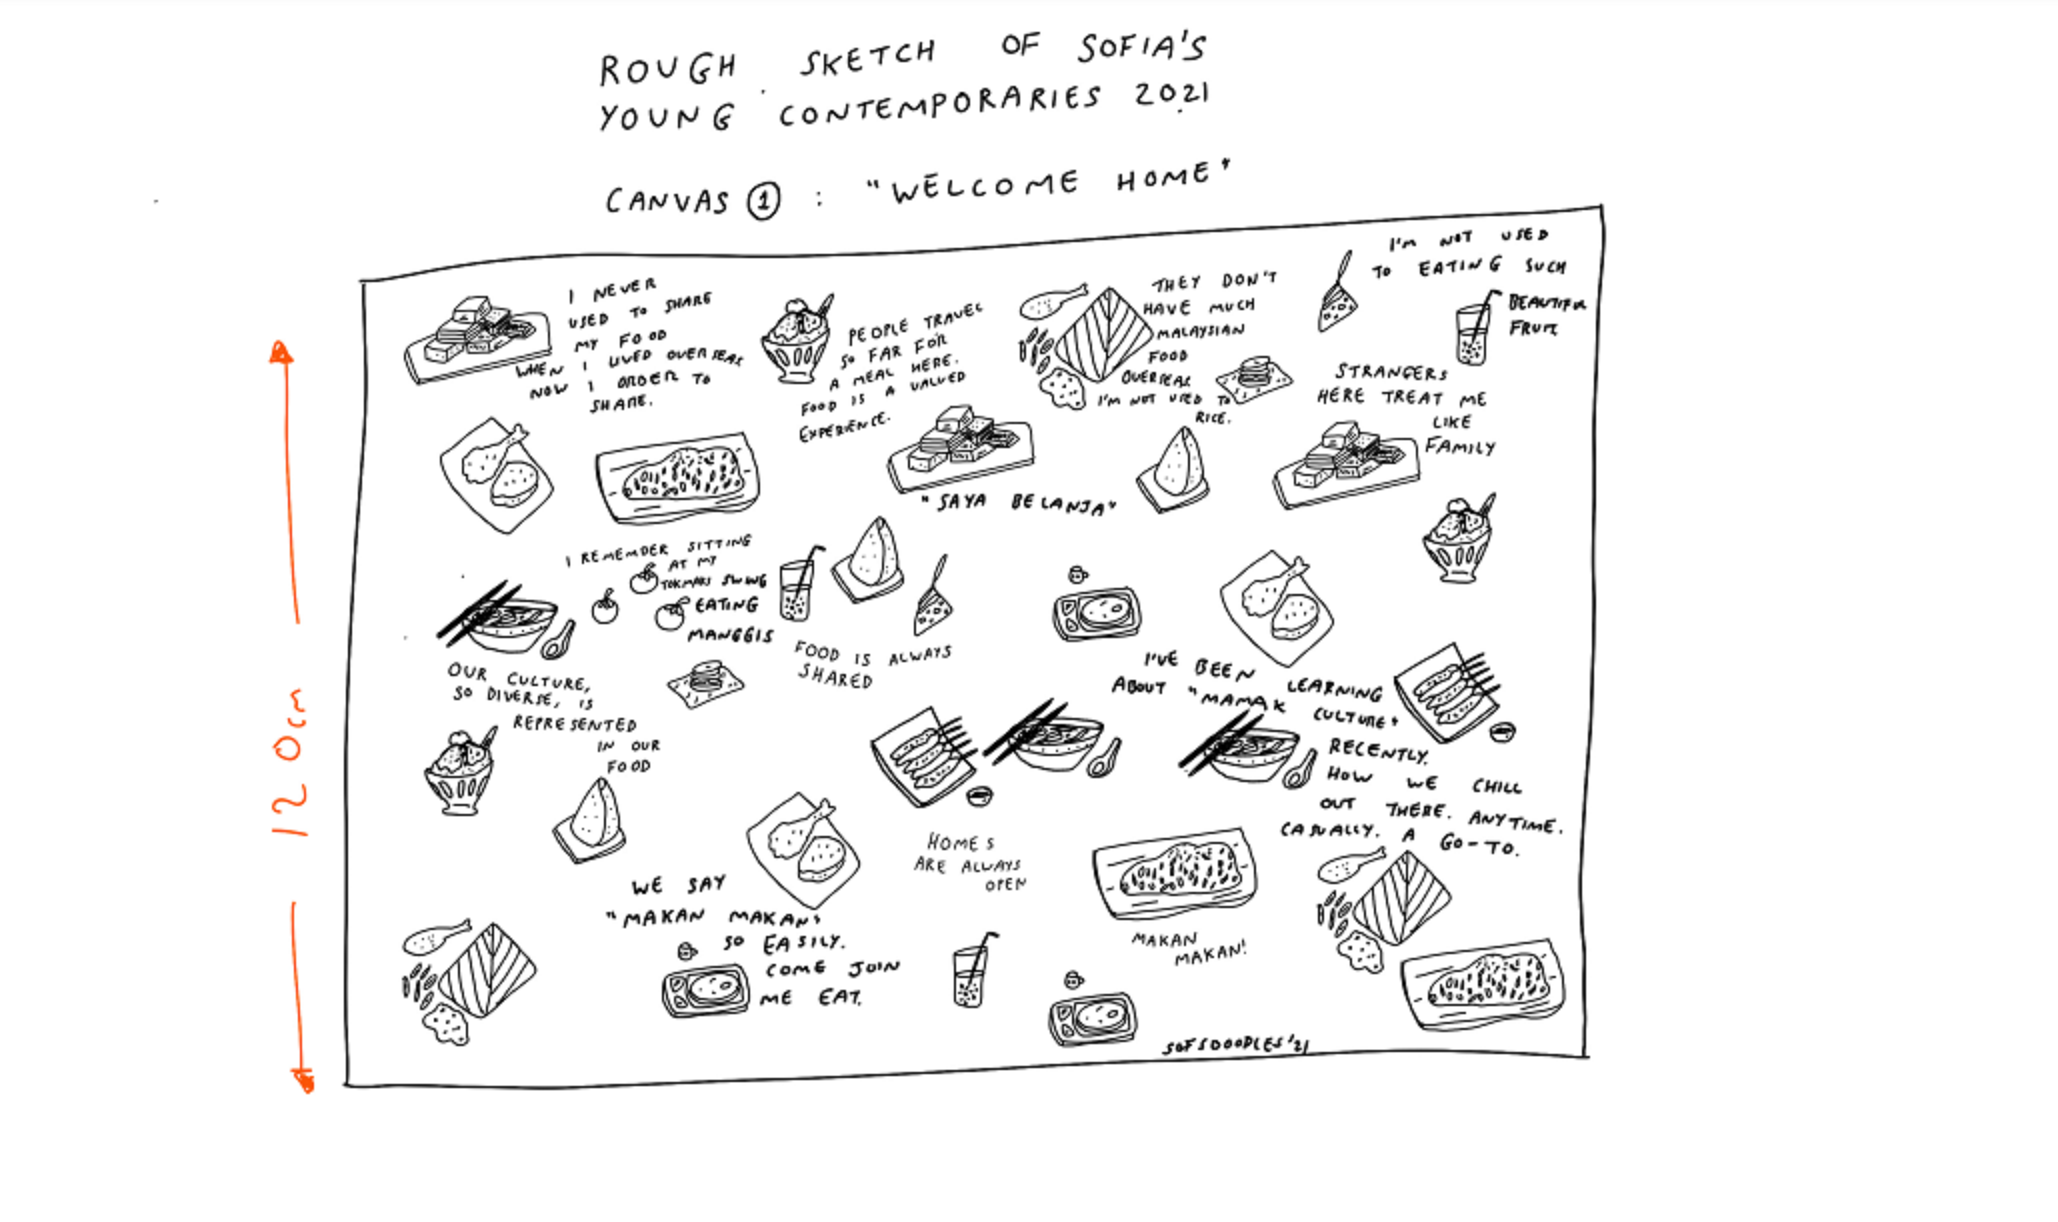 ROUGH SKETCH OF SOFIA'S
YOUNG CONTEMPORARIES 2021
CANVAS ① : "WELCOME HOME"
120cm
I NEVER
USED TO SHARE
MY FOOD
WHEN I LIVED OVERSEAS
NOW I ORDER TO
SHARE.
PEOPLE TRAVEL
SO FAR FOR
A MEAL HERE.
FOOD IS A VALUED
EXPERIENCE.
THEY DON'T
HAVE MUCH
MALAYSIAN
FOOD
OVERSEAS
I'M NOT USED TO
RICE.
I'M NOT USED
TO EATING SUCH
BEAUTIFUL
FRUIT
STRANGERS
HERE TREAT ME
LIKE
FAMILY
"SAYA BELANJA"
I REMEMBER SITTING
AT MY
SWING
EATING
MANGGIS
FOOD IS ALWAYS
SHARED
OUR CULTURE,
SO DIVERSE, IS
REPRESENTED
IN OUR
FOOD
I'VE BEEN LEARNING
ABOUT "MAMAK CULTURE"
RECENTLY.
HOW WE CHILL
OUT THERE. ANYTIME.
CASUALLY. A GO-TO.
HOMES
ARE ALWAYS
OPEN
WE SAY
"MAKAN MAKAN"
SO EASILY.
COME JOIN
ME EAT.
MAKAN
MAKAN!
SOFSDOODLES '21